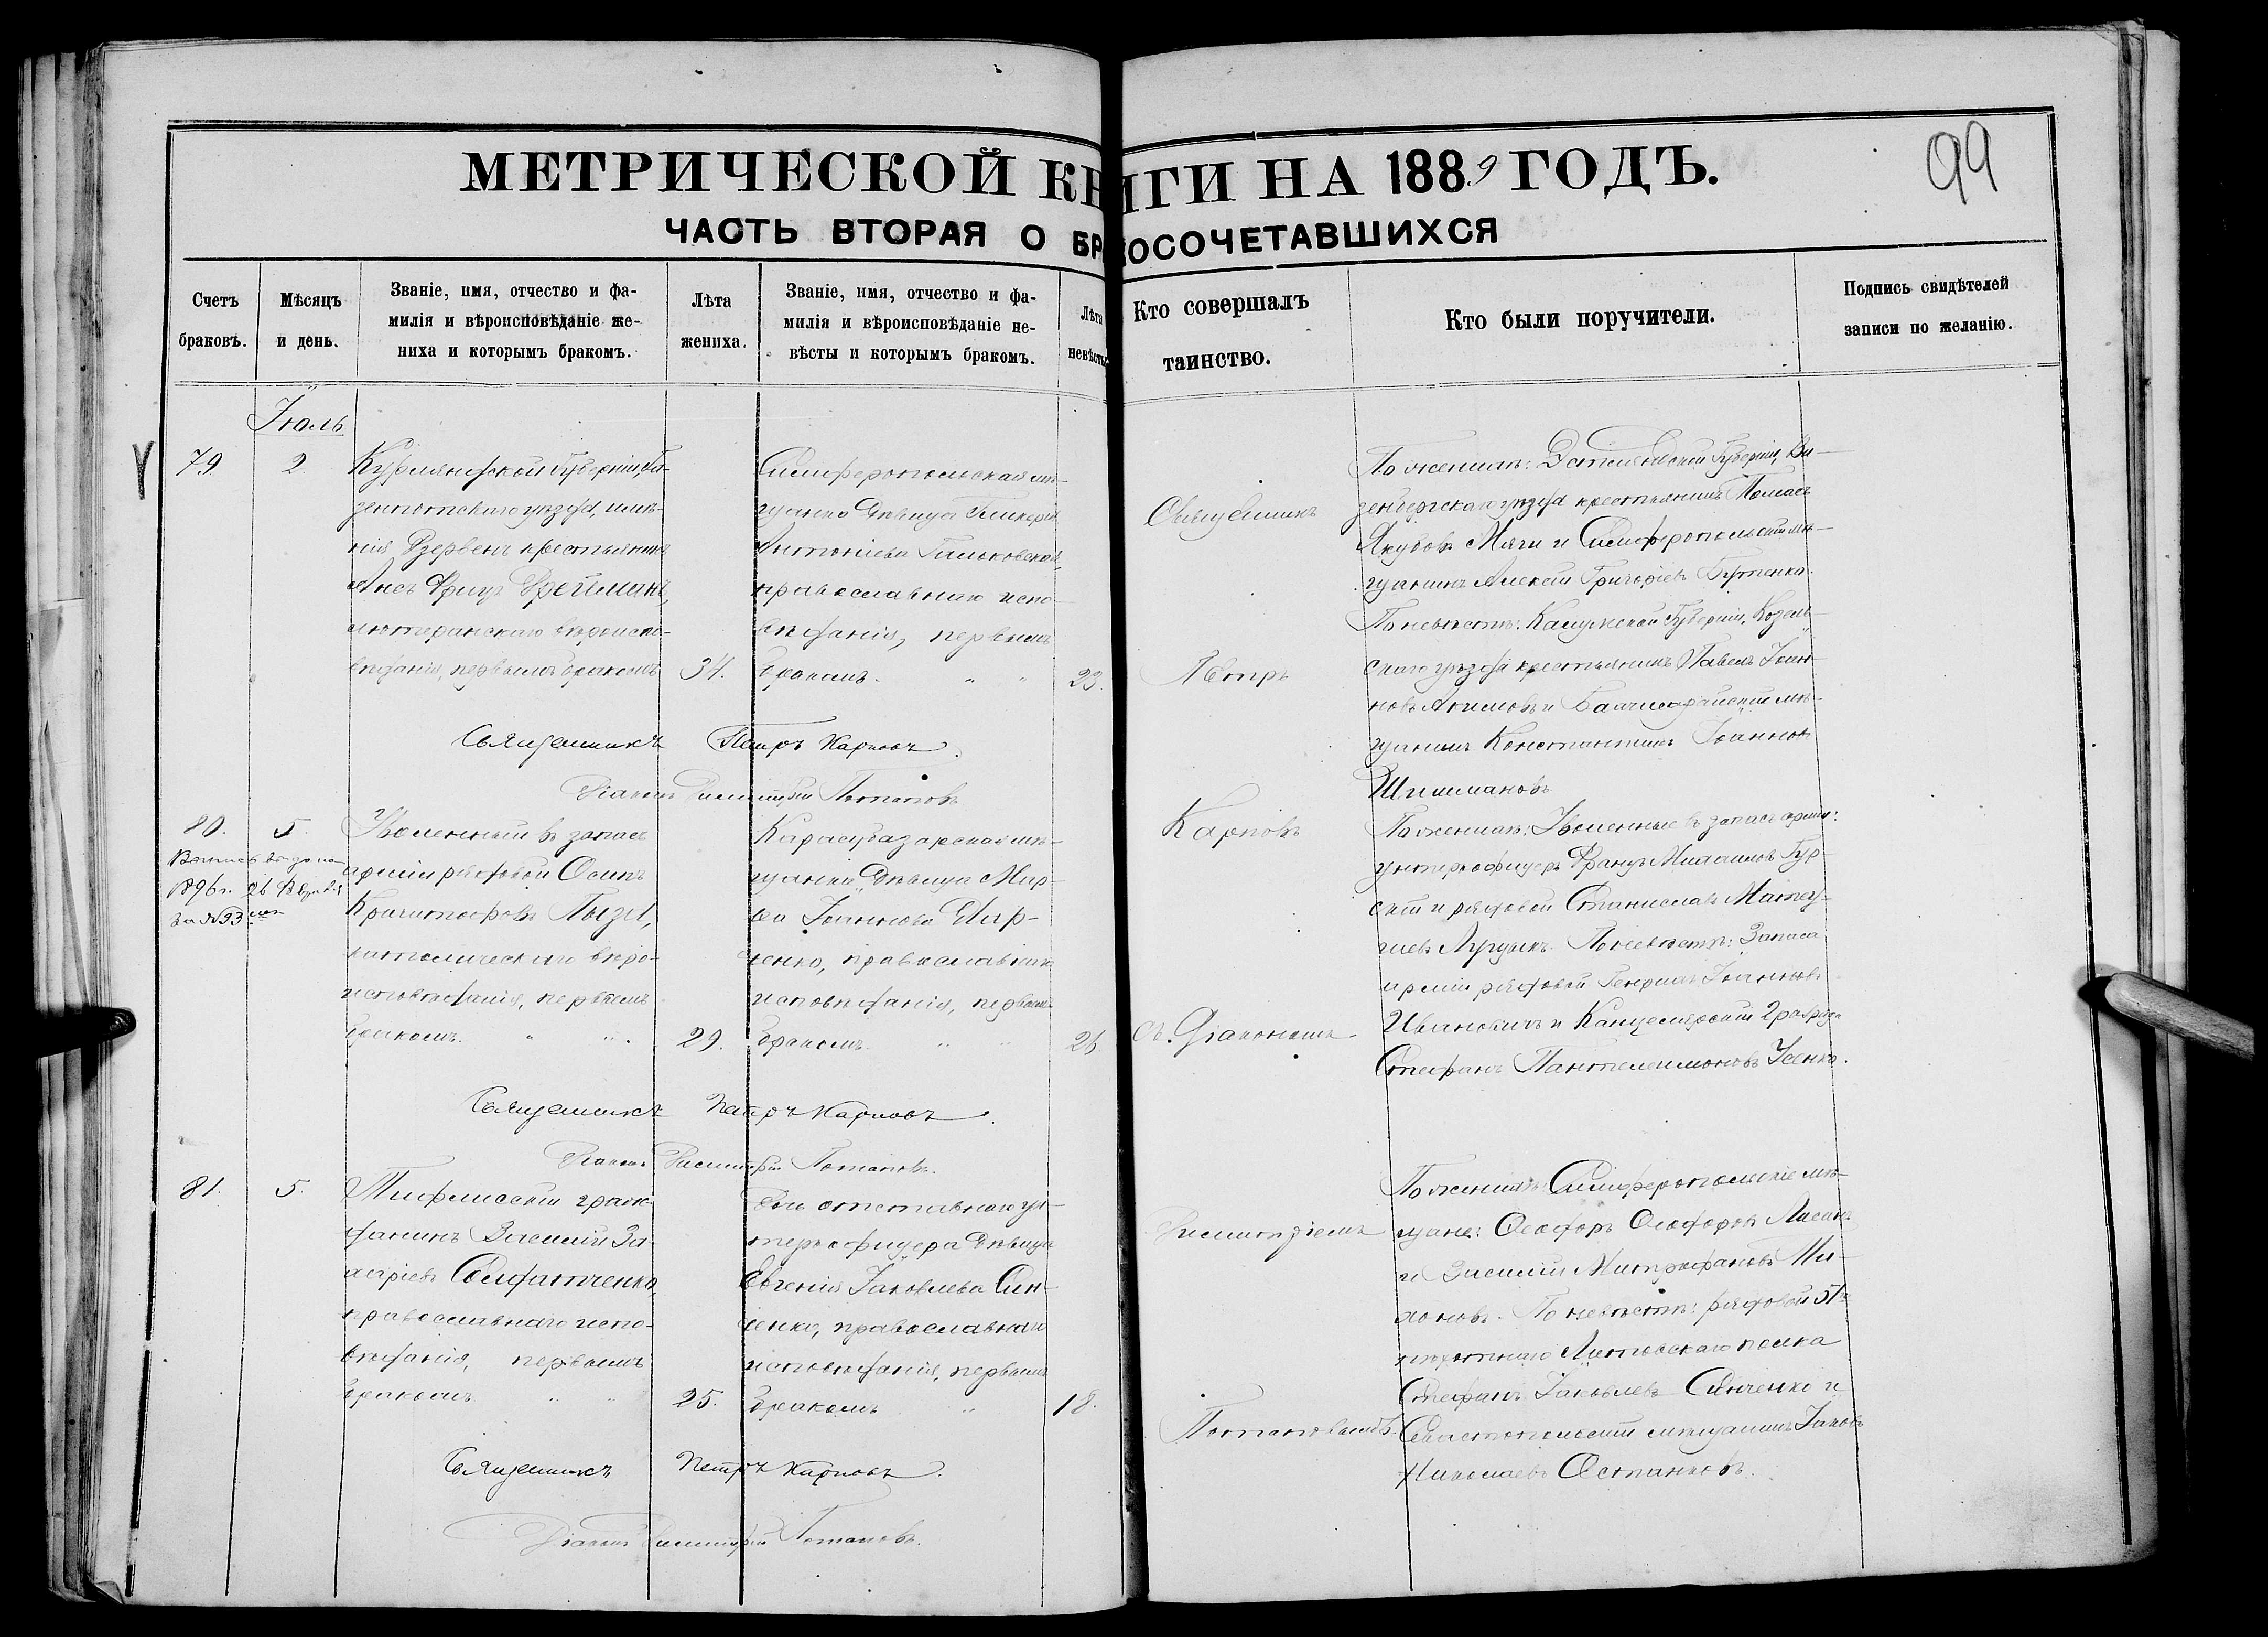 МЕТРИЧЕСКОЙ КНИГИ НА 1889 ГОДЪ.
99
ЧАСТЬ ВТОРАЯ О БРАКОСОЧЕТАВШИХСЯ
Счетъ браковъ.
Мѣсяцъ и день.
Званіе, имя, отчество и фа-
милія и вѣроисповѣданіе же-
ниха и которымъ бракомъ.
Лѣта жениха.
Званіе, имя, отчество и фа-
милія и вѣроисповѣданіе не-
вѣсты и которымъ бракомъ.
Лѣта невѣсты
Кто совершалъ
таинство.
Кто были поручители.
Подпись свидѣтелей
записи по желанію.
Іюль
79
2.
Курляндской Губерніи, Га-
зенпотскаго уѣзда, имѣ-
нія Дзервенъ крестьянинъ
Ансъ Фрицъ
лютеранскаго вѣроиспо-
вѣданія, первымъ бракомъ
34.
Симферопольская мѣ-
щанка дѣвица Гликерія
Антоніева Гальковская,
православнаго испо-
вѣданія, первымъ
бракомъ.
23.
Священникъ
Петръ
Карповъ
съ Діакономъ
Димитріемъ
Потаповымъ.
По женихѣ: Эстляндской Губерніи, Ве-
зенбергскаго уѣзда крестьянинъ Томасъ
Якубовъ Мяги и Симферопольскій мѣ-
щанинъ Алексѣй Григорьевъ Бутенко.
По невѣстѣ: Калужской Губерніи, Козель-
скаго уѣзда крестьянинъ Павелъ Іоан-
новъ Акимовъ и Бахчисарайскій мѣ-
щанинъ Константинъ Іоанновъ
Шишмановъ
Священникъ Петръ Карповъ.
Діаконъ Димитрій Потаповъ
80.
5.
1896 г. 26 Февраля
за № 93
Уволенный въ запасъ
арміи рядовой Осипъ
католическаго вѣро-
исповѣданія, первымъ
бракомъ.
29.
Карасубазарская мѣ-
щанка дѣвица Мар-
ѳа Іоаннова
православнаго
исповѣданія, первымъ
бракомъ.
26.
По женихѣ: Уволенные въ запасъ арміи:
унтерофицеръ Францъ Михаиловъ Гур-
скій и рядовой Станиславъ Матеу-
По невѣстѣ: Запаса
арміи рядовой Генрихъ Іоанновъ
Ивановичъ и Канцелярскій 2 разряда
Стефанъ Пантелеимоновъ Усенко.
Священникъ Петръ Карповъ.
Діаконъ Димитрій Потаповъ.
81.
5.
Тифлисскій граж-
данинъ Василій За-
харіевъ Солдатченко,
православнаго испо-
вѣданія, первымъ
бракомъ
25.
Дочь отставнаго ун-
терофицера дѣвица
Евгенія Іаковлева Син-
ченко, православнаго
исповѣданія, первымъ
бракомъ
18.
По женихѣ: Симферопольскіе мѣ-
щане: Ѳеодоръ Ѳеодоровъ
и Василій Митрофановъ Ти-
хоновъ. По невѣстѣ: рядовой 51го
пѣхотнаго Литовскаго полка
Стефанъ Іаковлевъ Синченко и
Севастопольскій мѣщанинъ Іаковъ
Николаевъ Останковъ.
Священникъ Петръ Карповъ.
Діаконъ Димитрій Потаповъ.